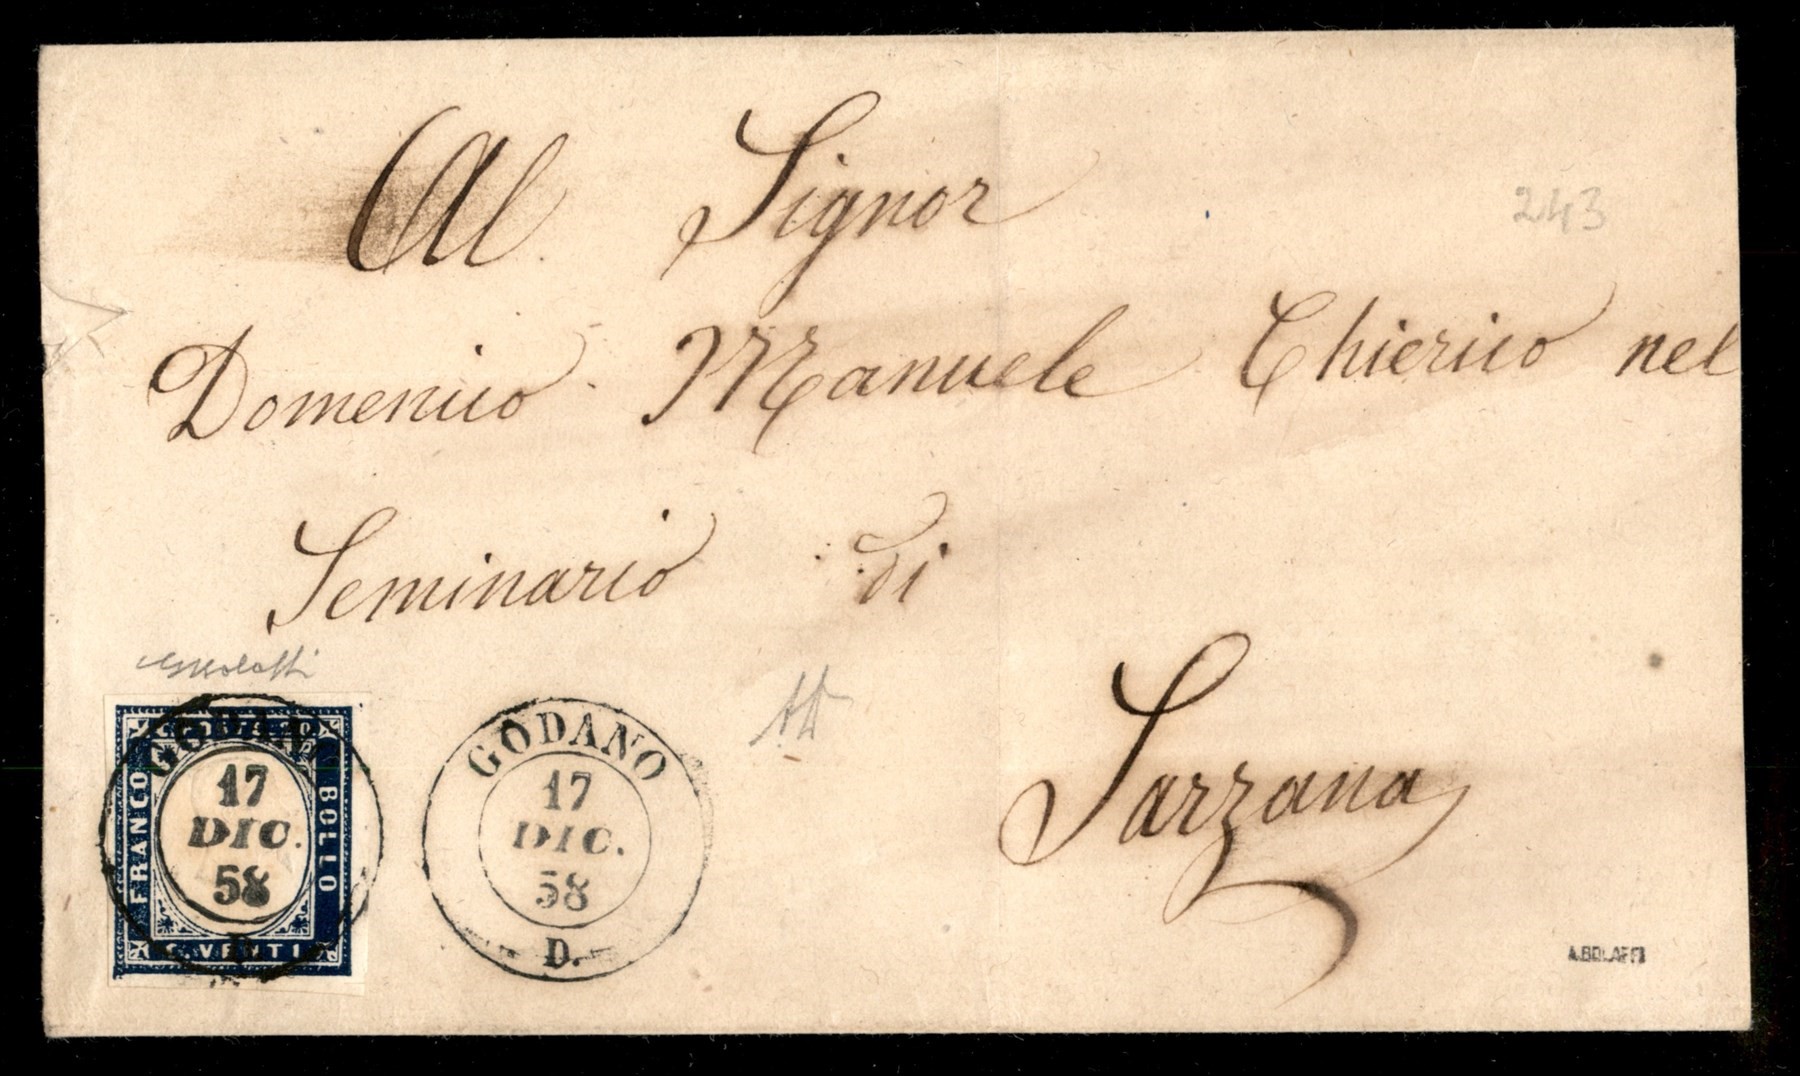 Al Signor
243
Domenico Manuele Chierico nel
Seminario di
Sarzana
GODANO
17
DIC.
58
D.
FRANCO
BOLLO
C. VENTI
GODANO
17
DIC.
58
D.
A.BOLAFFI